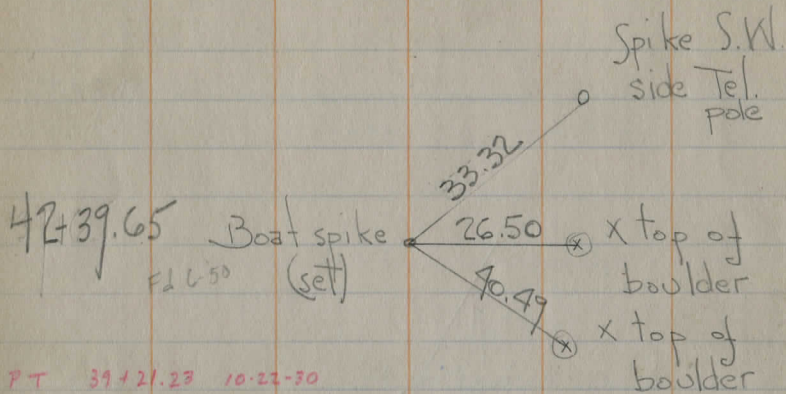 Spike S.W.
side Tel.
pole
33.32
42+39.65 Boat spike 26.50 x top of
Fd 6-50 (set) boulder
40.49 x top of
boulder
PT 39+21.23 10-22-30